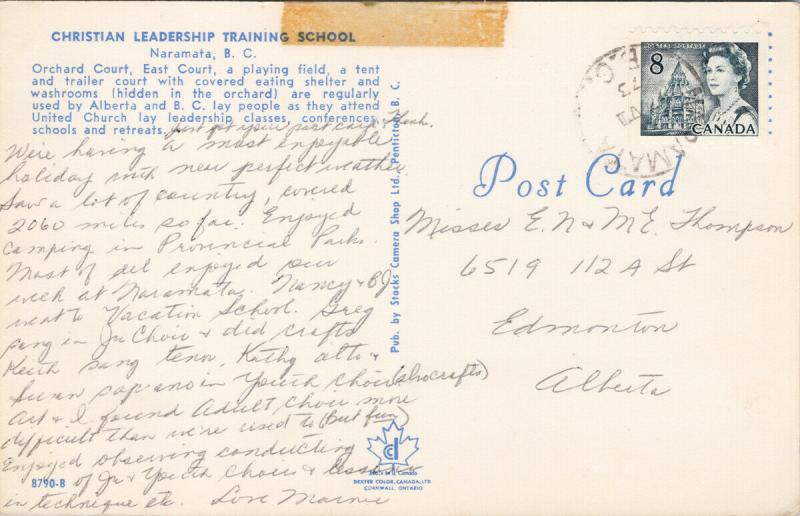 CHRISTIAN LEADERSHIP TRAINING SCHOOL
Naramata, B. C.
Orchard Court, East Court, a playing field, a tent
and trailer court with covered eating shelter and
washrooms (hidden in the orchard) are regularly
used by Alberta and B. C. lay people as they attend
United Church lay leadership classes, conferences,
schools and retreats.
Just got your post card.
We're having a most enjoyable
holiday with near perfect weather.
Saw a lot of country, covered
2060 miles so far. Enjoyed
camping in Provincial Parks.
Most of all enjoyed our
week at Naramata. Nancy & BJ
went to Vacation School. Greg
sang in Jr Choir & did crafts
Keith sang tenor, Kathy alto &
Susan soprano in Youth Choir (also crafts)
Art & I found Adult Choir more
difficult than we're used to (But fun)
Enjoyed observing conducting
of Jr & Youth Choir &
in technique etc. Love Marnie
8790-B
Pub. by Stocks Camera Shop Ltd., Penticton, B. C.
DEXTER COLOR, CANADA, LTD
CORNWALL, ONTARIO
POSTES POSTAGE
8
CANADA
Post Card
Misses E. N & M E. Thompson
6519 112 A St
Edmonton
Alberta